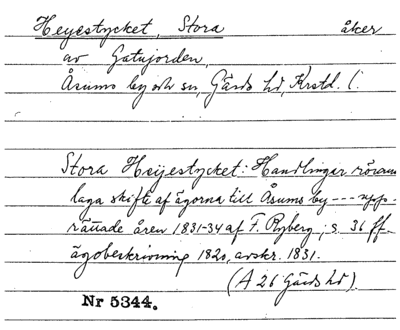 Heyestycket, Stora åker
av Gatujorden,
Åsums by och sn, Gärds hd, Krstd. l.
Stora Heijestycket: Handlingar rörande
laga skifte af ägorna till Åsums by --- upp-
rättade åren 1831-34 af F. Ryberg, s. 36 ff.
ägobeskrivning 1820, avskr. 1831.
(A 26 Gärds hd).
Nr 5344.